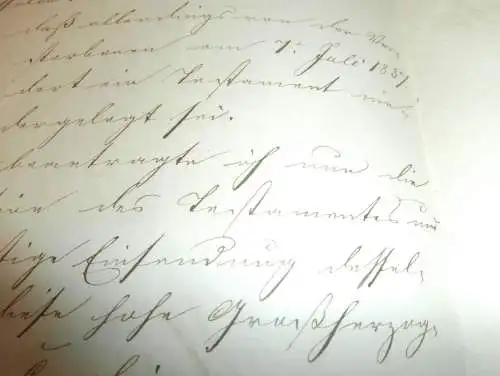 daß allerdings von der Ver¬
storbenen am 7t Juli 1851
dort ein Testament nie¬
dergelegt sei.
beantragte ich nun die
des Testamentes und
tige Einsendung dessel¬
diese hohe Großherzog¬